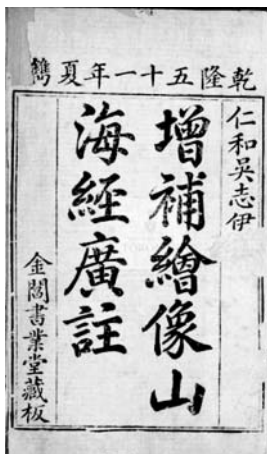 乾隆五十一年夏鐫
仁和吳志伊
增補繪像山
海經廣註
金閶書業堂藏板